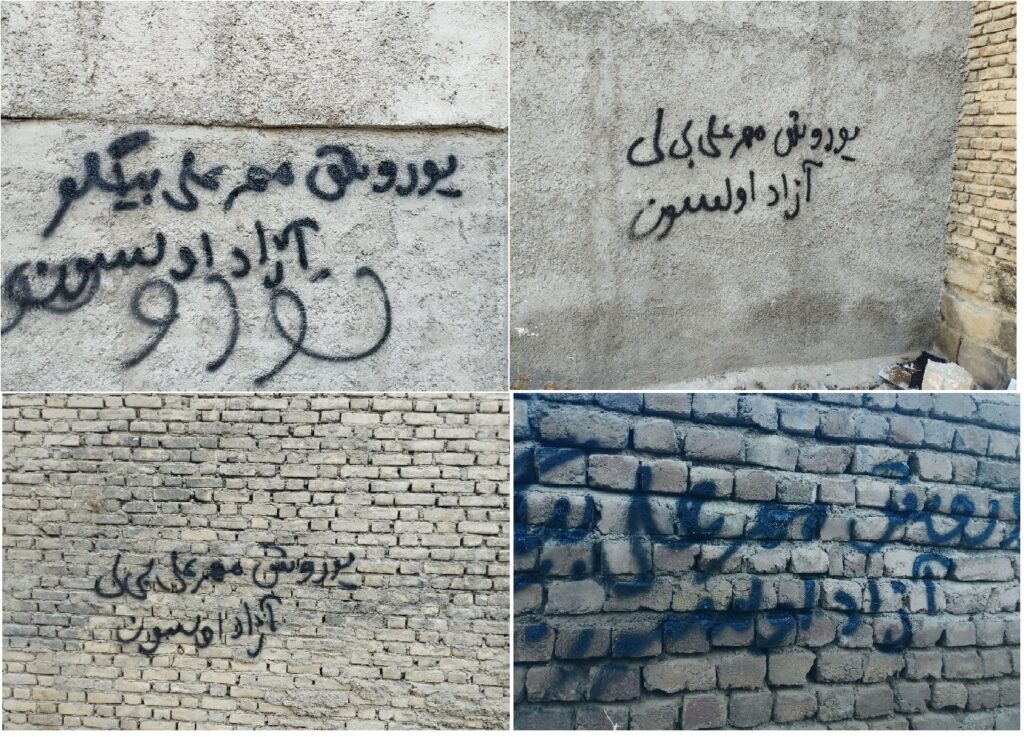 یوروش مهرعلی بیگلو
آزاد اولسون
یوروش مهرعلی بی لی
آزاد اولسون
یوروش مهرعلی بی لی
آزاد اولسون
مهرعلی
آزاد اولسون